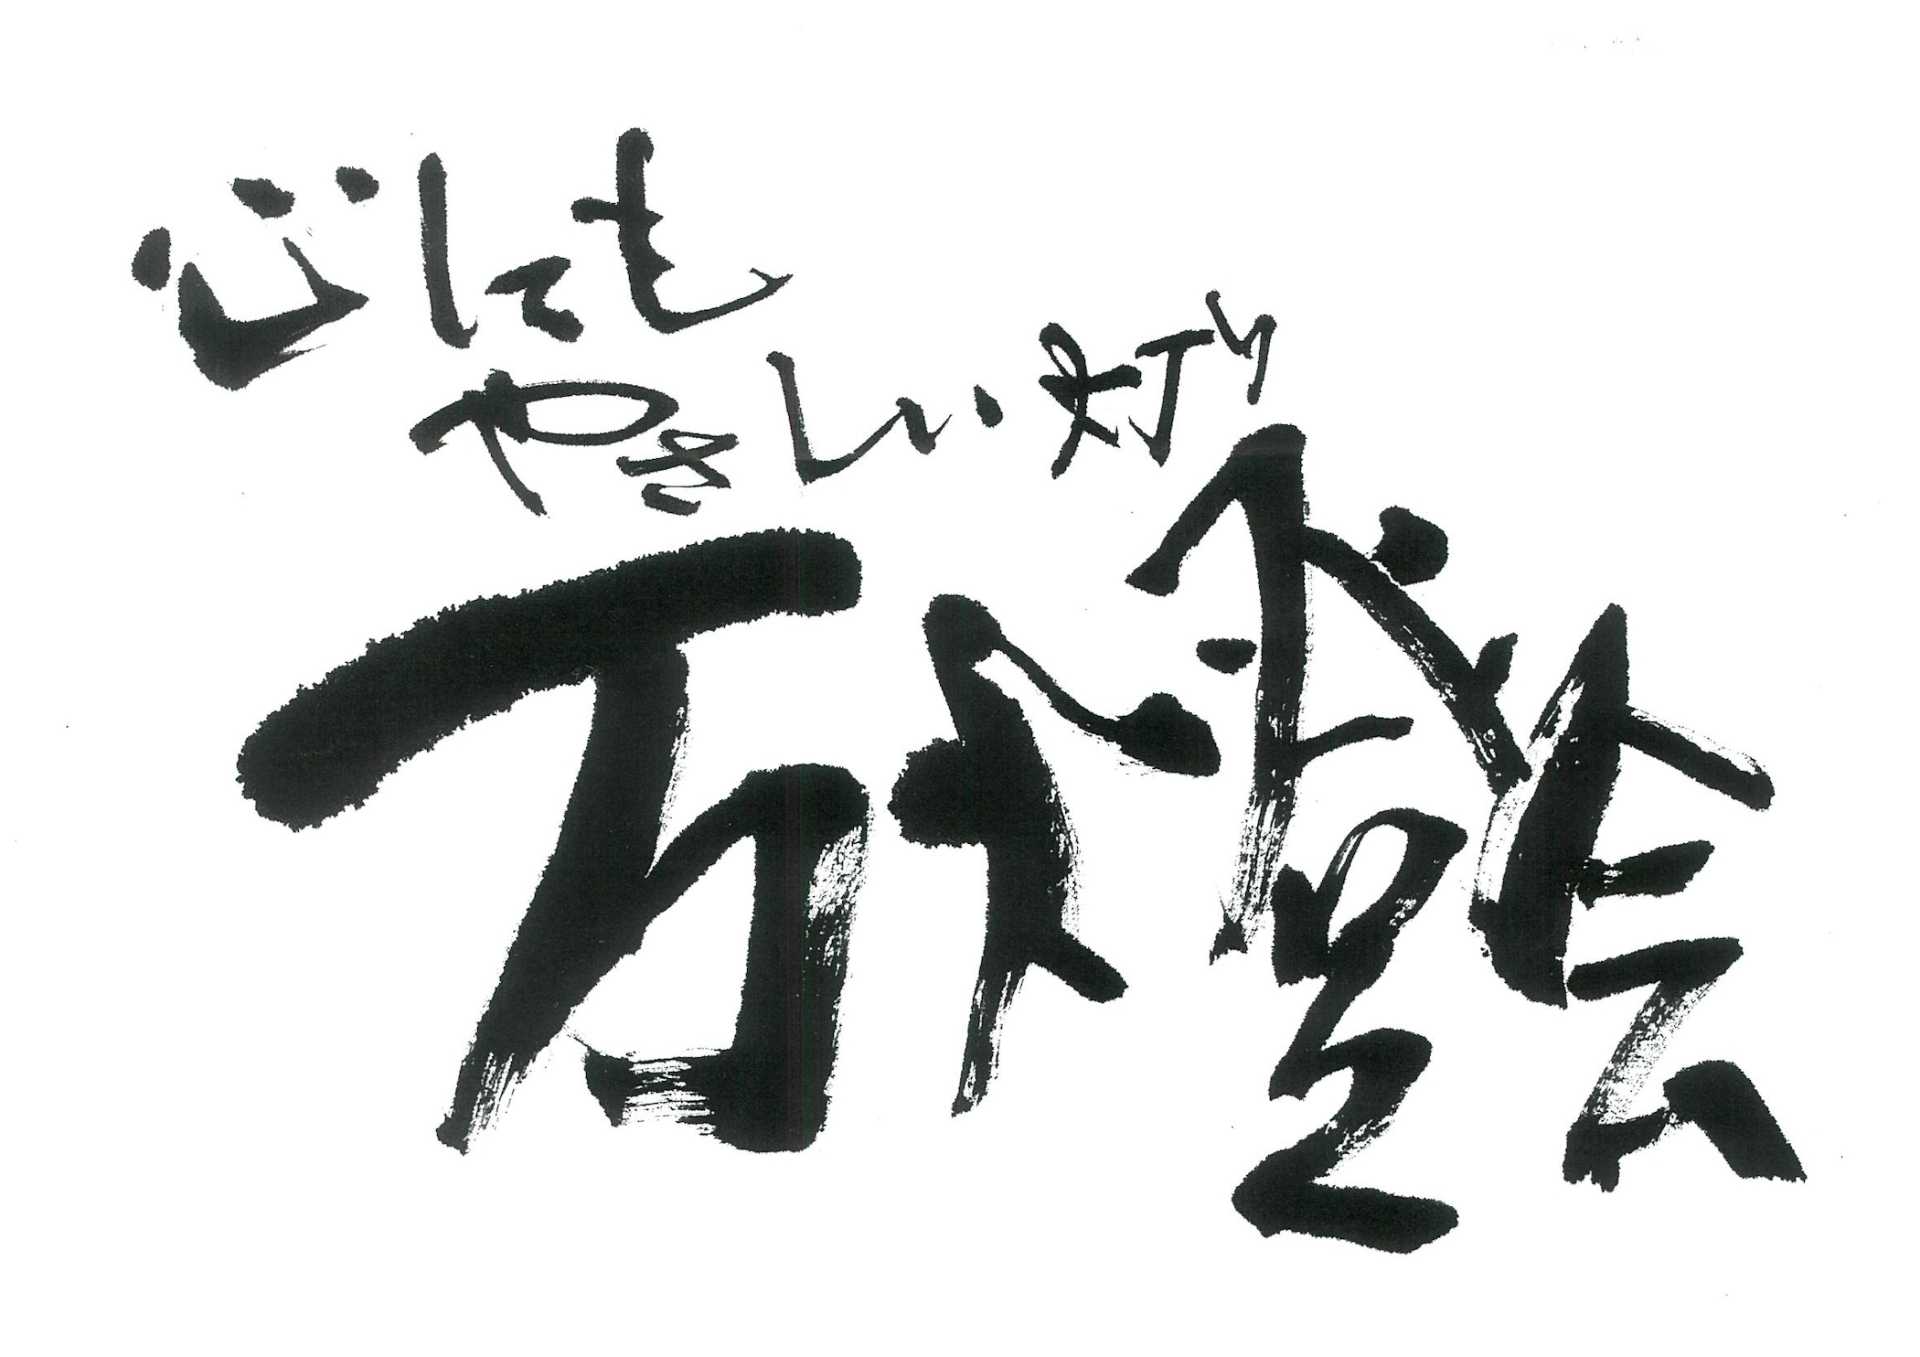 心にも
やさしい灯り
万燈会